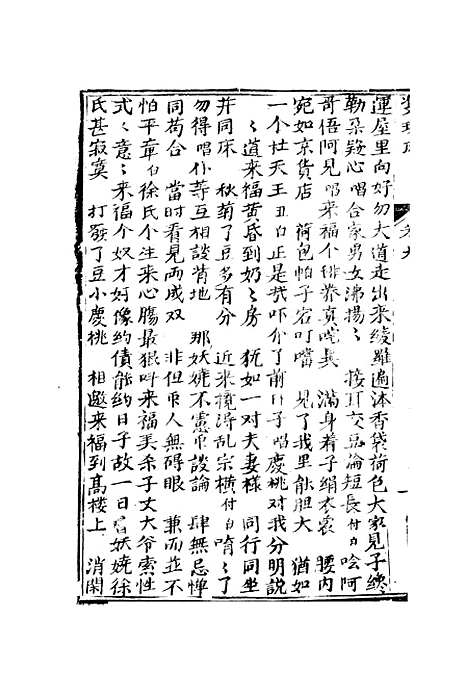 運屋里向好勿大道走出來綾羅遍体香袋荷包大家見子總
勒朶疑心唱合家男女沸揚〻　接耳交頭論短長付白唅阿
哥俉阿見唱來福个佛養真　滿身着子絹衣裳　腰内
宛如京貨店　荷包帕子宕叮噹　見了我里能胆大　猶如
一个杜天王丑白正是我吓介了前日子唱慶桃對我分明說
〻道來福黄昏到奶〻房　犹如一对夫妻樣　同行同坐
并同床　秋菊了豆多有分　近來攪得乱宗横付白唷〻了
勿得唱仆等互相談背地　那妖嬈不靈　談論　肆無忌憚
同苟合　當时看見兩成双　非但　人無碍眼　兼而並不
怕平章白徐氏个注來心腸最狠叫來福美杀子丈大爷索性
式〻意〻來福个奴才好像約債能約日子故一日唱妖嬈徐
氏甚寂寞　打發了豆小慶桃　相邀來福到高楼上　消閑